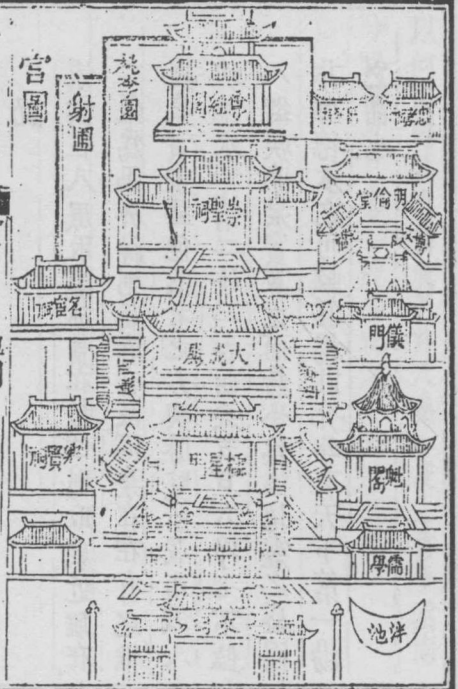 宮圖
射圃
尊經閣
崇聖祠
明倫堂
名宦祠
儀門
大成殿
西廡
鄉賢祠
魁閣
儒學
泮池